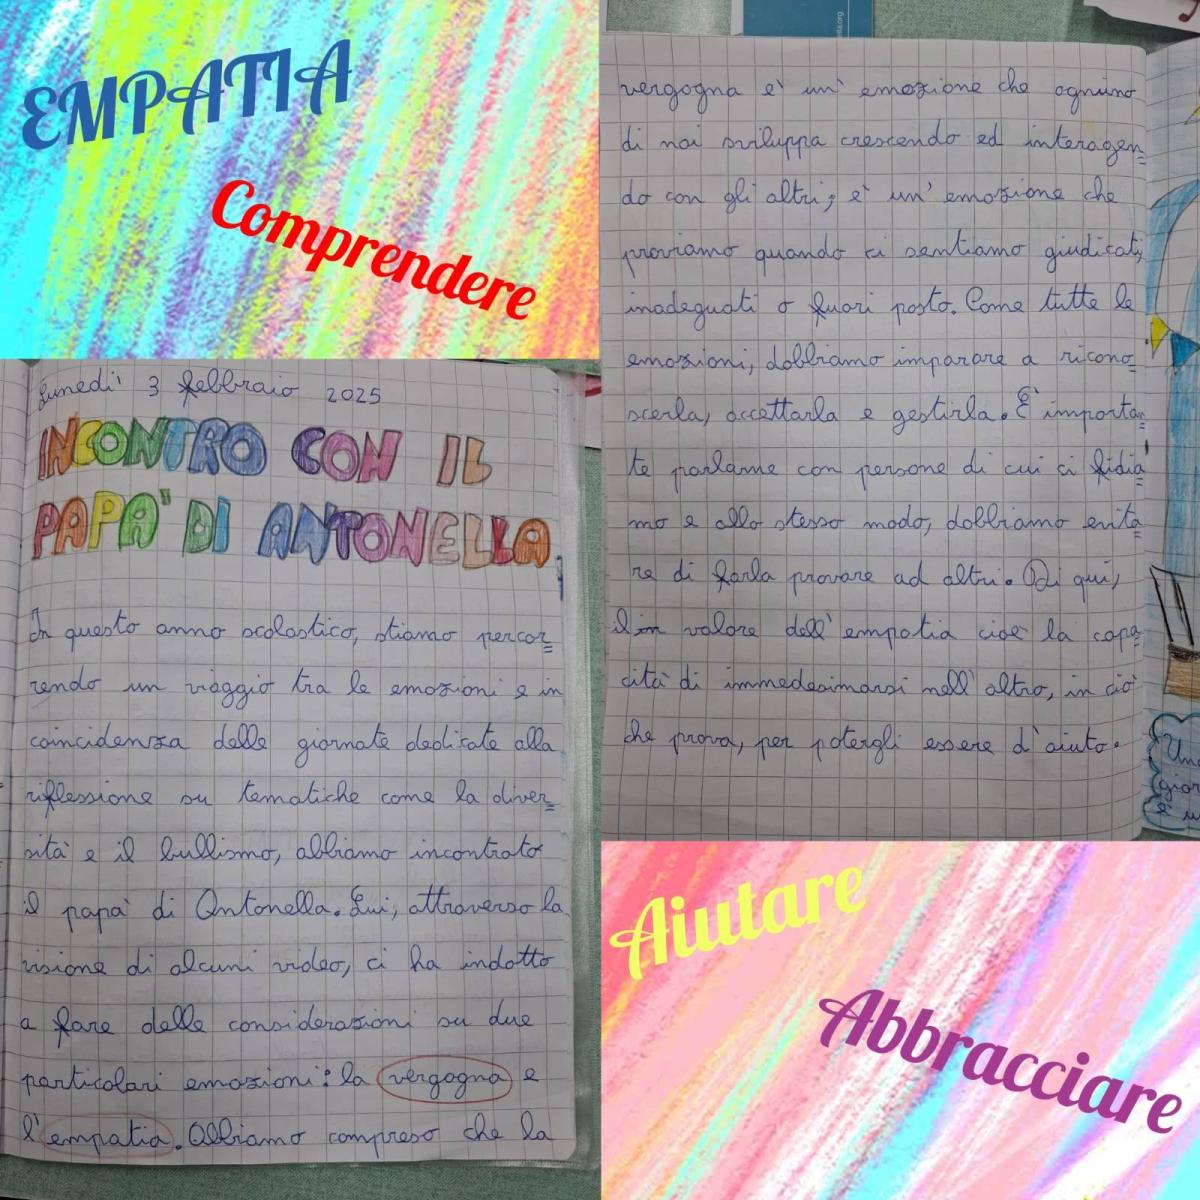 EMPATIA
Comprendere
Lunedì 3 febbraio 2025
INCONTRO CON IL
PAPA' DI ANTONELLA
In questo anno scolastico, stiamo percor=
rendo un viaggio tra le emozioni e in
coincidenza delle giornate dedicate alla
riflessione su tematiche come la diver=
sità e il bullismo, abbiamo incontrato
il papà di Antonella. Lui, attraverso la
visione di alcuni video, ci ha indotto
a fare delle considerazioni su due
particolari emozioni: la vergogna e
l'empatia. Abbiamo compreso che la
vergogna è un' emozione che ognuno
di noi sviluppa crescendo ed interagen=
do con gli altri; è un' emozione che
proviamo quando ci sentiamo giudicati,
inadeguati o fuori posto. Come tutte le
emozioni, dobbiamo imparare a ricono
scerla, accettarla e gestirla. È importan=
te parlarne con persone di cui ci fidia=
mo e allo stesso modo, dobbiamo evita=
re di farla provare ad altri. Di qui,
il valore dell' empatia cioè la capa=
cità di immedesimarsi nell' altro, in ciò
che prova, per potergli essere d'aiuto.
Aiutare
Abbracciare